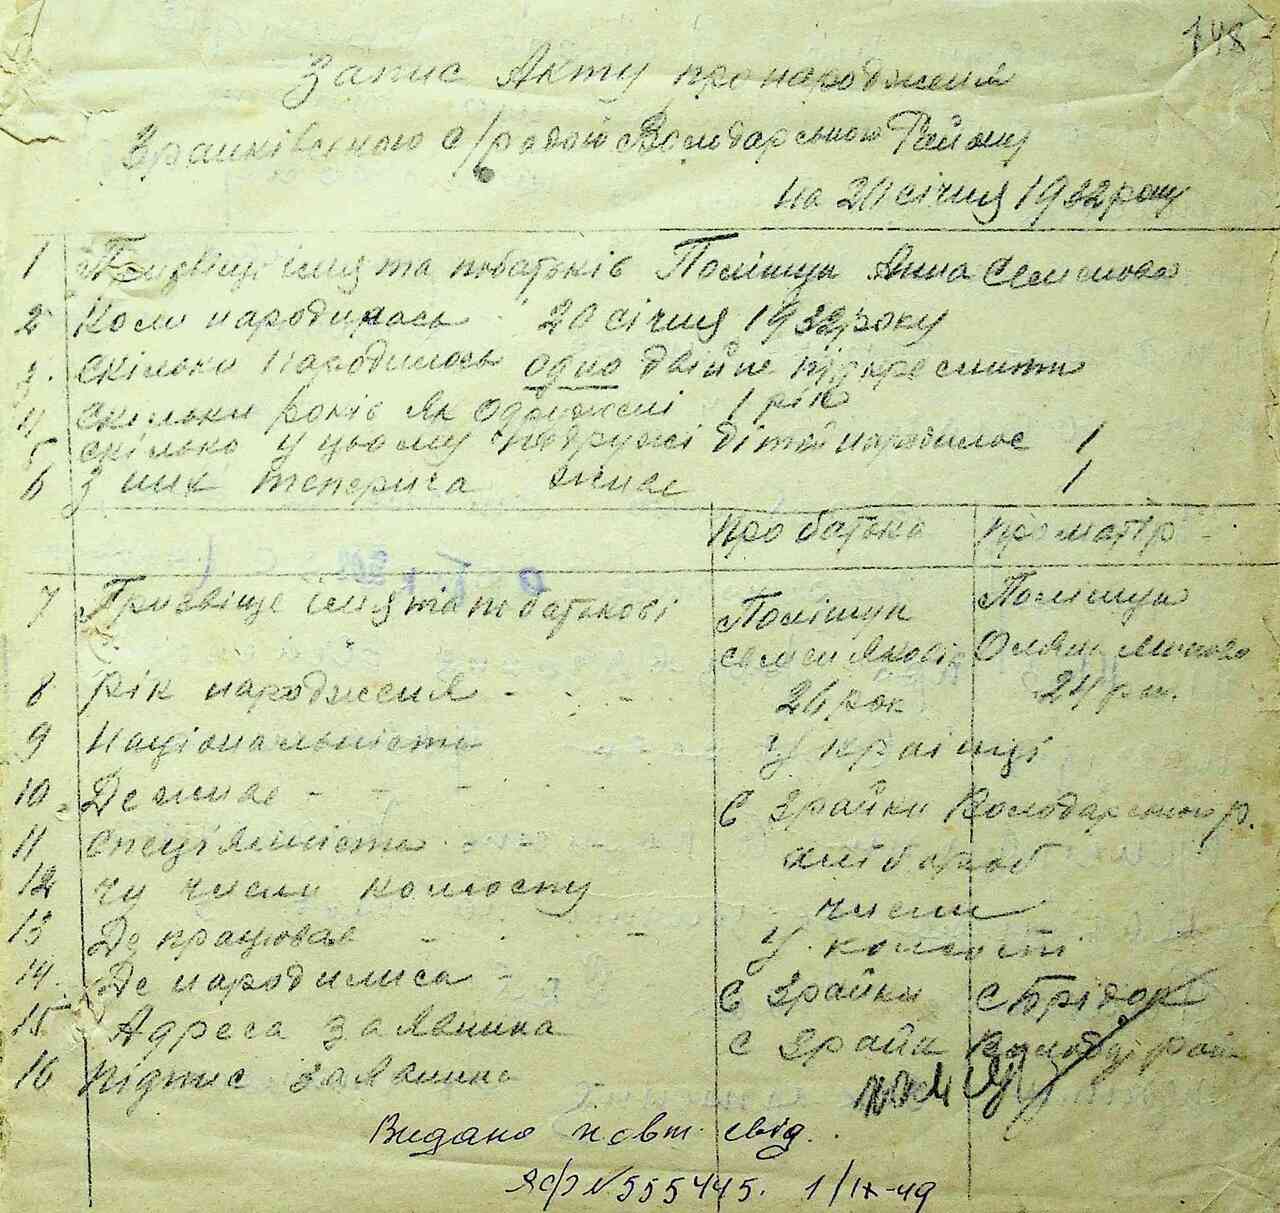 148
Запис Акту про народженя
Зрайківською с/радою Володарського Району
на 20 січня 1932 року
1 Призвище імя та побатьків Поліщук Анна Семенова
2 Коли народилась 20 січня 1932 року
3. скілько народилось одно двійне підкреслити
4 скільки років як Одружені 1 рік
5 скілько у цьому подружі дітей народилос 1
6 З них теперича живе 1
Про батька Про матір
7 Призвіще імя та по батькові Поліщук Поліщук
семен Якові
8 Рік народженя - - - 26 рок 24 рок.
9 Національність Українці
10 Де живе - - - - с Зрайки Володарського р.
11 Спеціялність хлібороб
12 чи члени колгоспу члени
13 Де працював - - - У колгоспі
14. Де народилися - с Зрайки с
15 Адреса заявника с Зрайк
16 Підпис заявника
Видано повт. свід.
ЯФ №555445. 1/IX-49